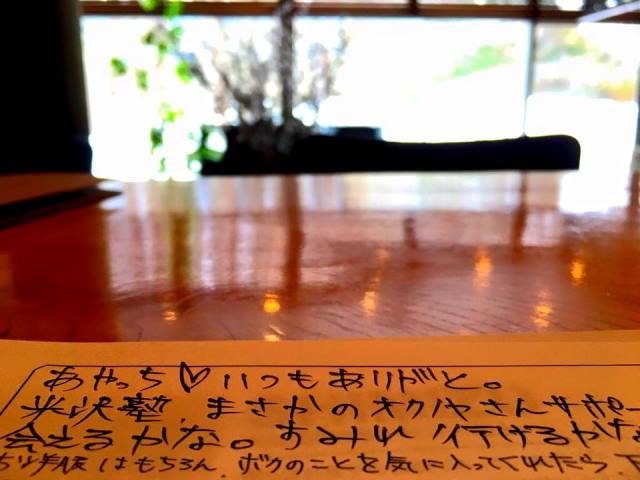 あやっち♡いつもありがと。
米沢塾、まさかのオクノヤさんサポー
会えるかな。すみれ 行けるかな
はもちろん、ボクのことを気に入ってくれたら、